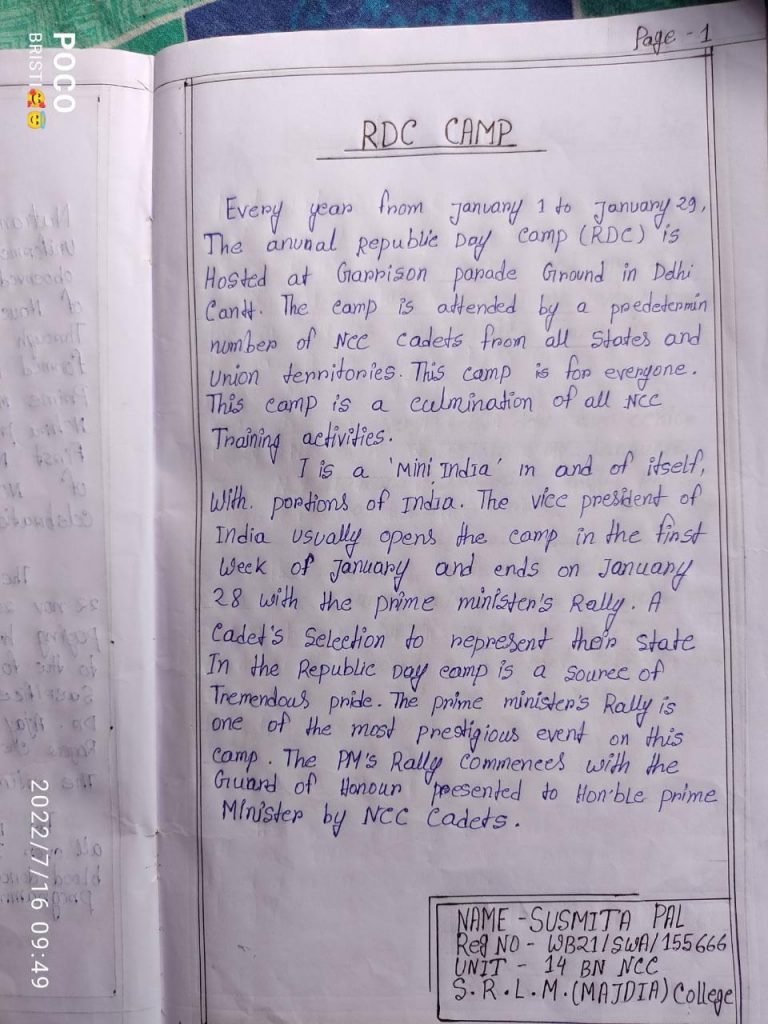 Page - 1
RDC CAMP
Every year from January 1 to January 29,
The anunal Republic Day Camp (RDC) is
Hosted at Garrison parade Ground in Delhi
Cantt. The camp is attended by a predetermin
number of NCC cadets from all States and
Union territories. This camp is for everyone.
This camp is a culmination of all NCC
Training activities.
I is a 'Mini India' in and of itself,
With. portions of India. The vice president of
India usually opens the camp in the first
Week of January and ends on January
28 with the prime minister's Rally. A
Cadet's Selection to represent their State
In the Republic Day camp is a source of
Tremendous pride. The prime minister's Rally is
one of the most prestigious event on this
camp. The PM's Rally Commences with the
Guard of Honour presented to Hon'ble prime
Minister by NCC Cadets.
NAME - SUSMITA PAL
Reg NO - WB21/SWA/155666
UNIT - 14 BN NCC
S.R.L.M.(MAJDIA) College
POCO
BRISTI🥰😇
2022/7/16 09:49